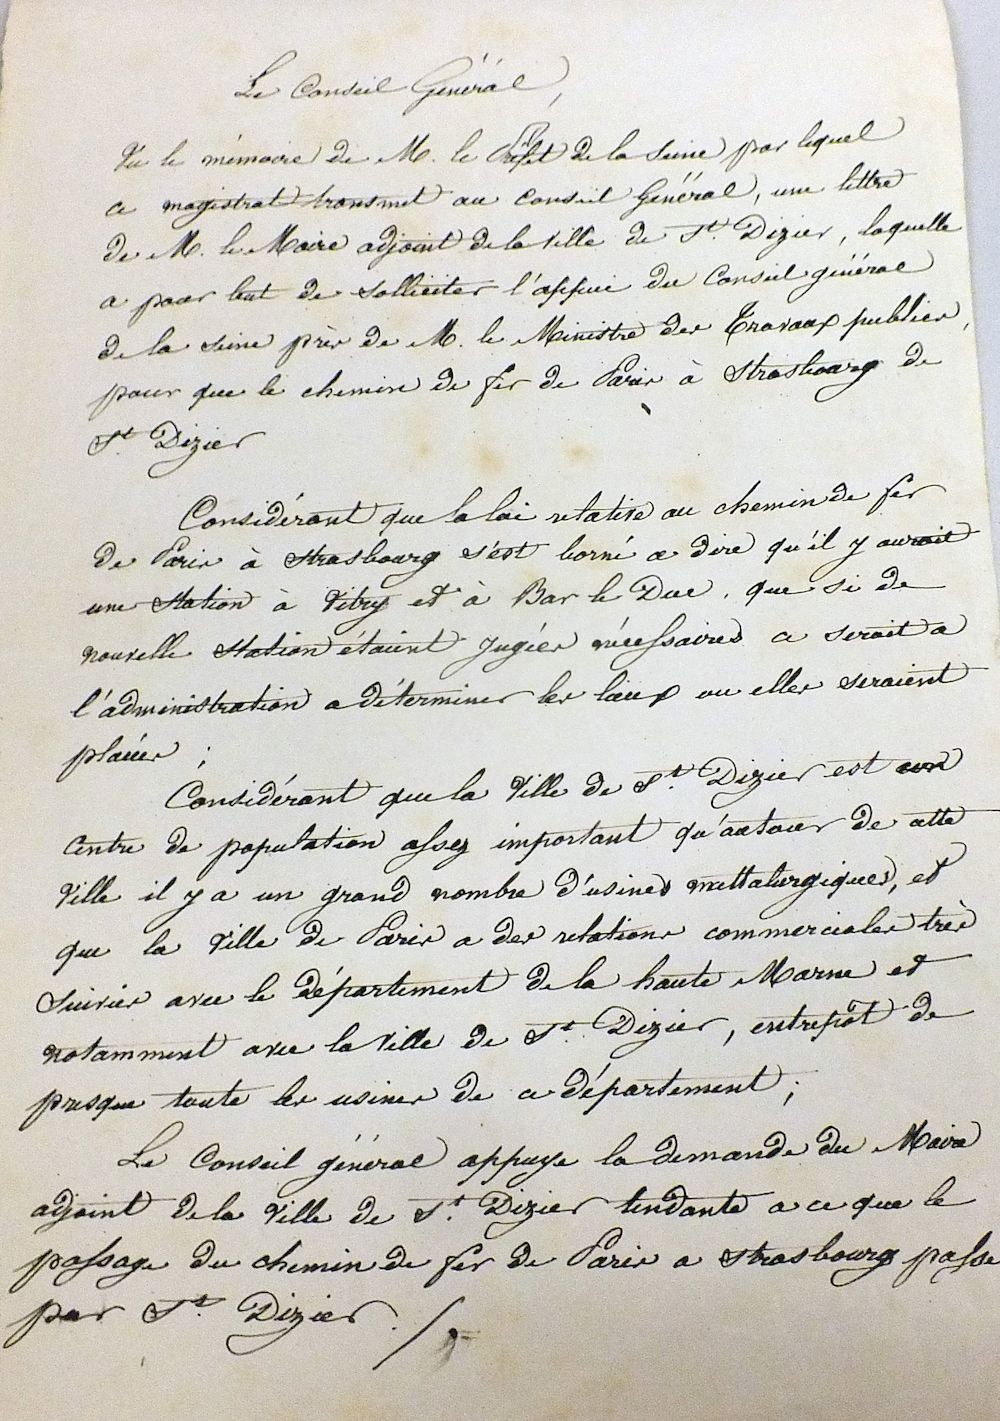 Le Conseil Général,
Vu le mémoire de M. le Préfet de la Seine par lequel
ce magistrat transmet au Conseil Général, une lettre
de M. le Maire adjoint de la Ville de St. Dizier, laquelle
a pour but de solliciter l'appui du Conseil général
de la Seine près de M. le Ministre des Travaux publics,
pour que le chemin de fer de Paris à Strasbourg de
St. Dizier
Considérant que la loi relative au chemin de fer
de Paris à Strasbourg s'est borné a dire qu'il y aurait
une Station à Vitry et à Bar le Duc, que si de
nouvelle Station étaient jugées nécessaires ce serait a
l'administration a déterminer les lieux ou elles seraient
placées ;
Considérant que la Ville de St. Dizier est un
centre de population assez important qu'autour de cette
Ville il y a un grand nombre d'usines mettalurgiques, et
que la Ville de Paris a des relations commerciales très
suivies avec le département de la haute Marne et
notamment avec la Ville de St. Dizier, entrepôt de
presque toute les usines de ce département ;
Le Conseil général appuye la demande du Maire
adjoint de la Ville de St. Dizier tendante a ce que le
passage du chemin de fer de Paris a Strasbourg passe
par St. Dizier. /